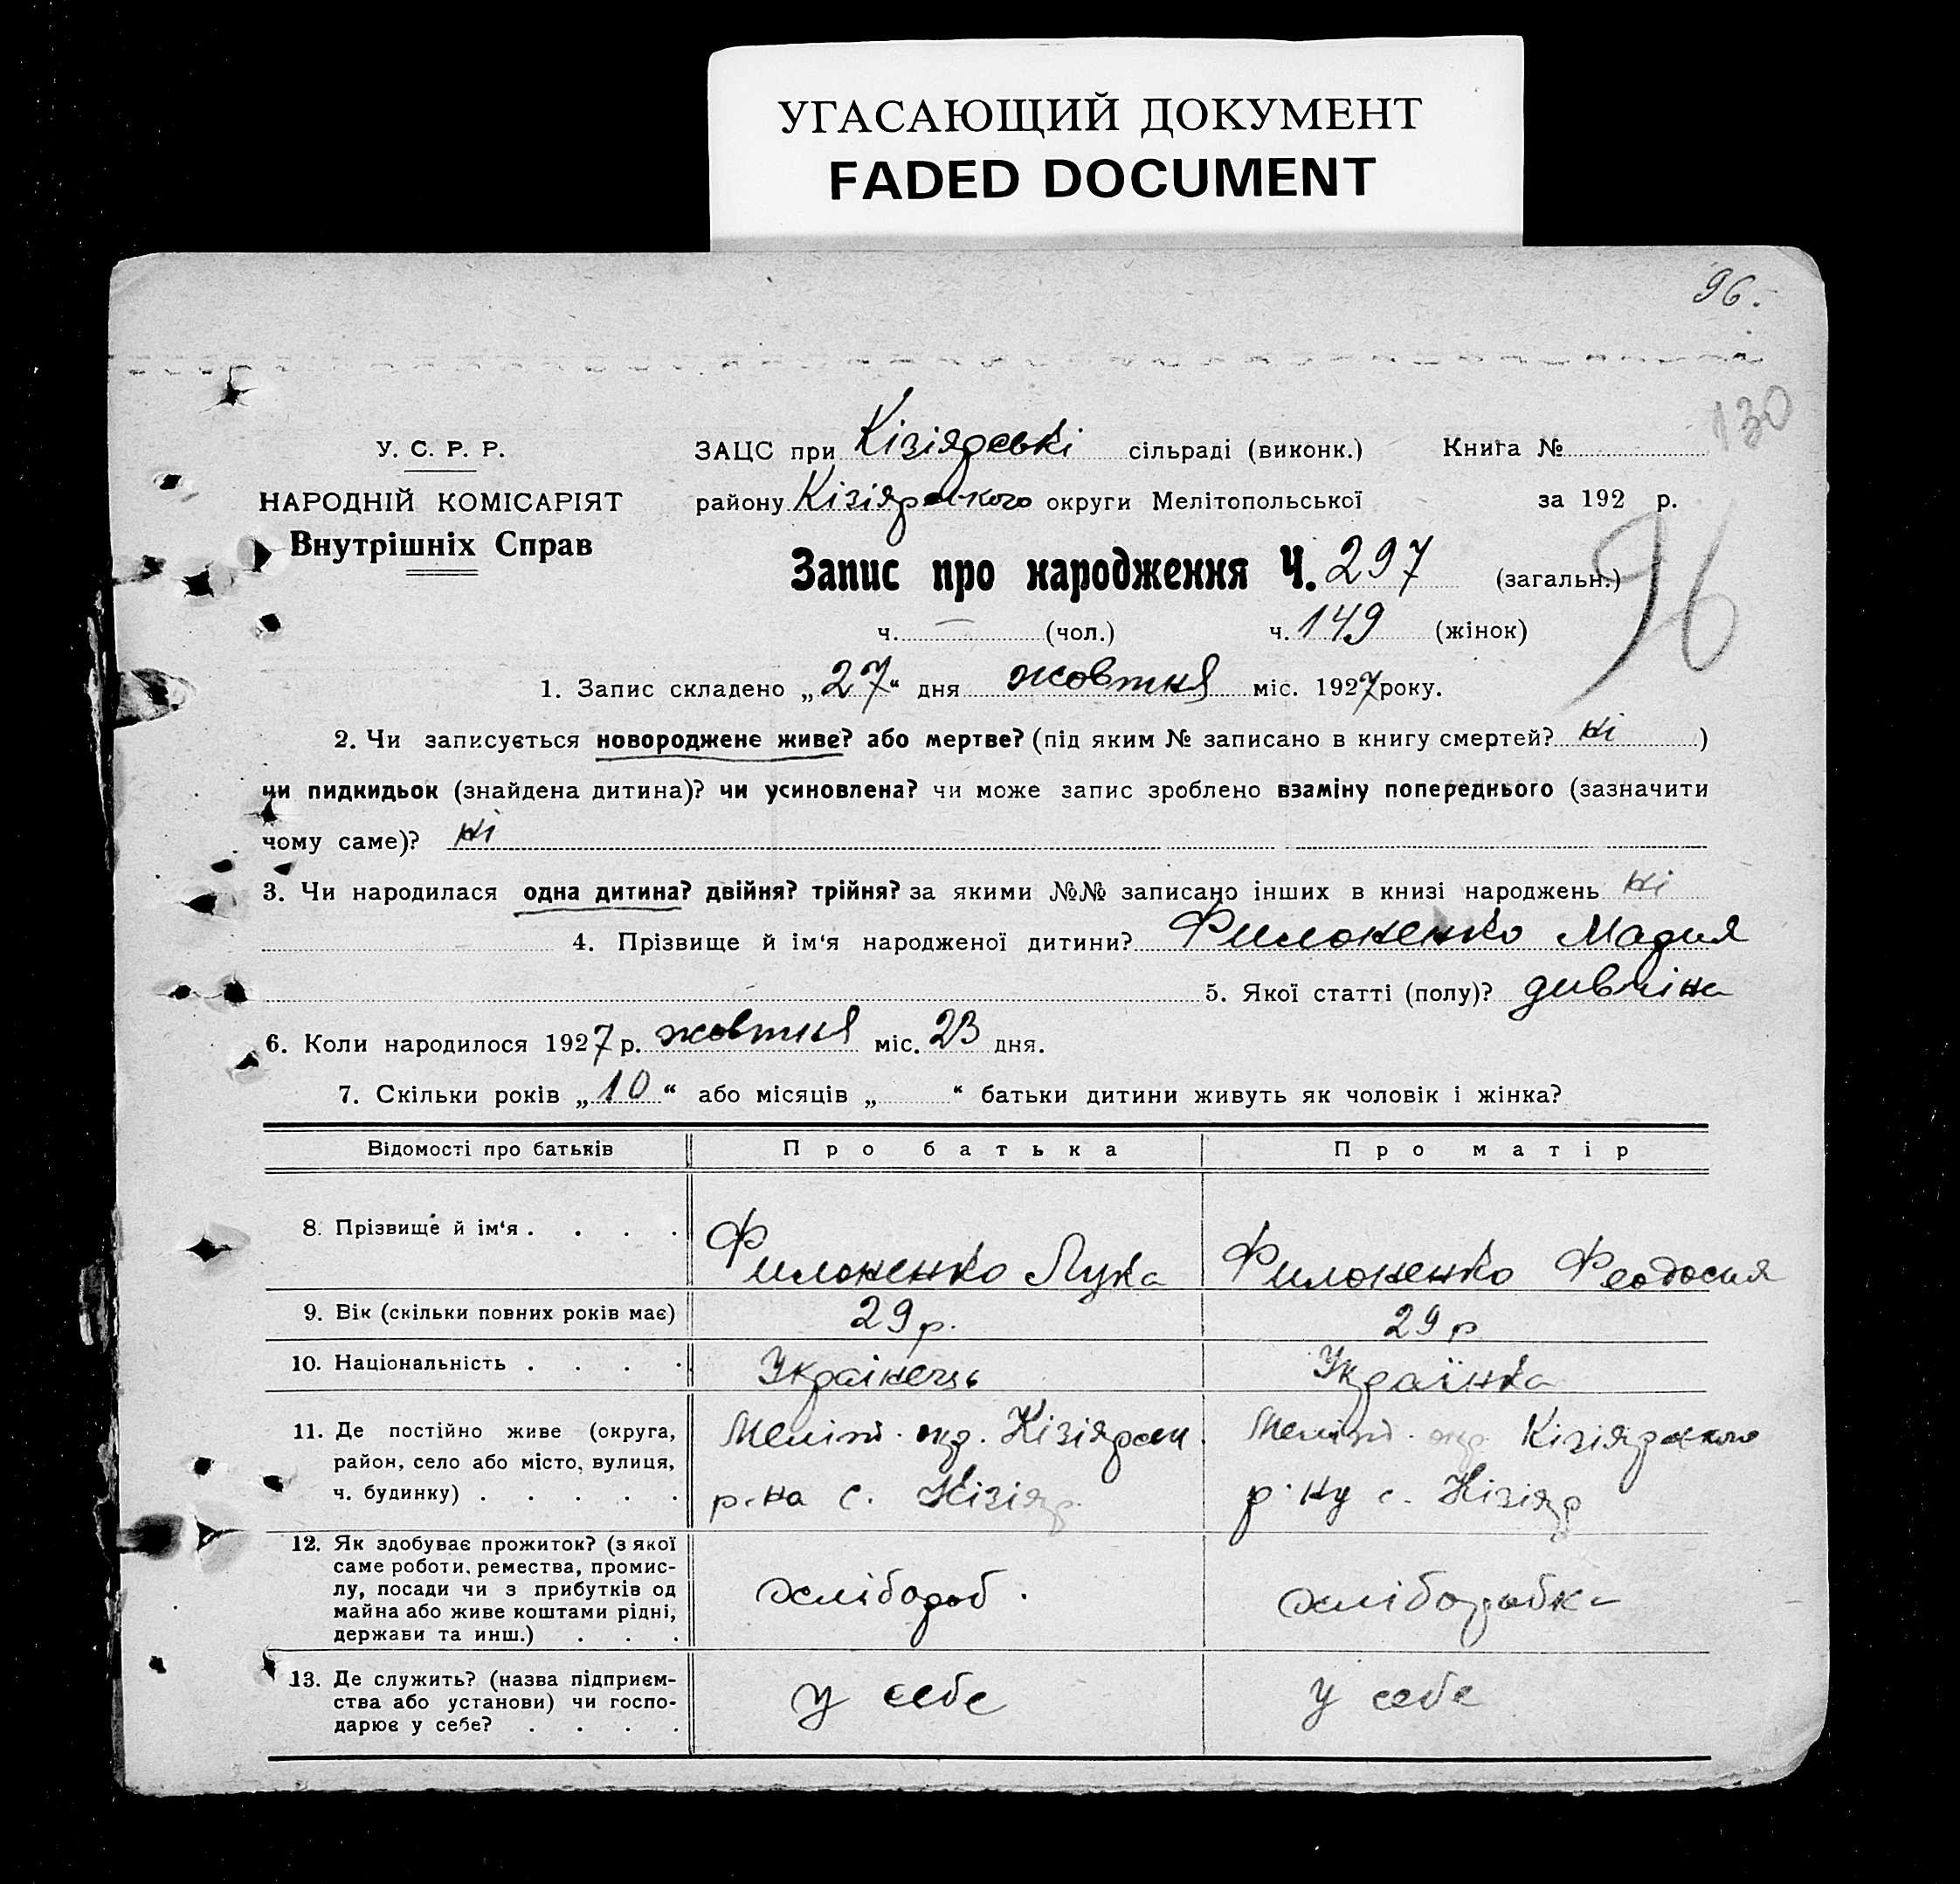 УГАСАЮЩИЙ ДОКУМЕНТ
FADED DOCUMENT
96.
130
У. С. Р. Р.
НАРОДНІЙ КОМІСАРІЯТ
Внутрішніх Справ
ЗАЦС при Кізіярські сільраді (виконк.) Книга №
району Кізіярського округи Мелітопольської за 192 р.
Запис про народження Ч. 297 (загальн.)
96
ч. — (чол.) ч. 149 (жінок)
1. Запис складено „27“ дня жовтня міс. 1927 року.
2. Чи записується новороджене живе? або мертве? (під яким № записано в книгу смертей? ні )
чи пидкидьок (знайдена дитина)? чи усиновлена? чи може запис зроблено взаміну попереднього (зазначити
чому саме)? ні
3. Чи народилася одна дитина? двійня? трійня? за якими №№ записано інших в книзі народжень ні
4. Прізвище й ім‘я народженої дитини? Филоненко Мария
5. Якої статті (полу)? дивчіна
6. Коли народилося 1927 р. жовтня міс. 23 дня.
7. Скільки років „10“ або місяців „ “ батьки дитини живуть як чоловік і жінка?
Відомості про батьків Про батька Про матір
8. Прізвище й ім‘я . . . . Филоненко Лука Филоненко Феодосия
9. Вік (скільки повних років має) 29 р. 29 р
10. Національність . . . . Украінець Українка
11. Де постійно живе (округа, Меліт. окр. Кізіярськ. Меліт. окр. Кізіярського
район, село або місто, вулиця,
ч. будинку) . . . . . р-на с. Кізіяр. р-ну с. Кізіяр
12. Як здобуває прожиток? (з якої
саме роботи, ремества, промис-
лу, посади чи з прибутків од хлібороб. хліборобка
майна або живе коштами рідні,
держави та инш.) . . .
13. Де служить? (назва підприєм-
ства або установи) чи госпо- у себе у себе
дарює у себе? . . . .